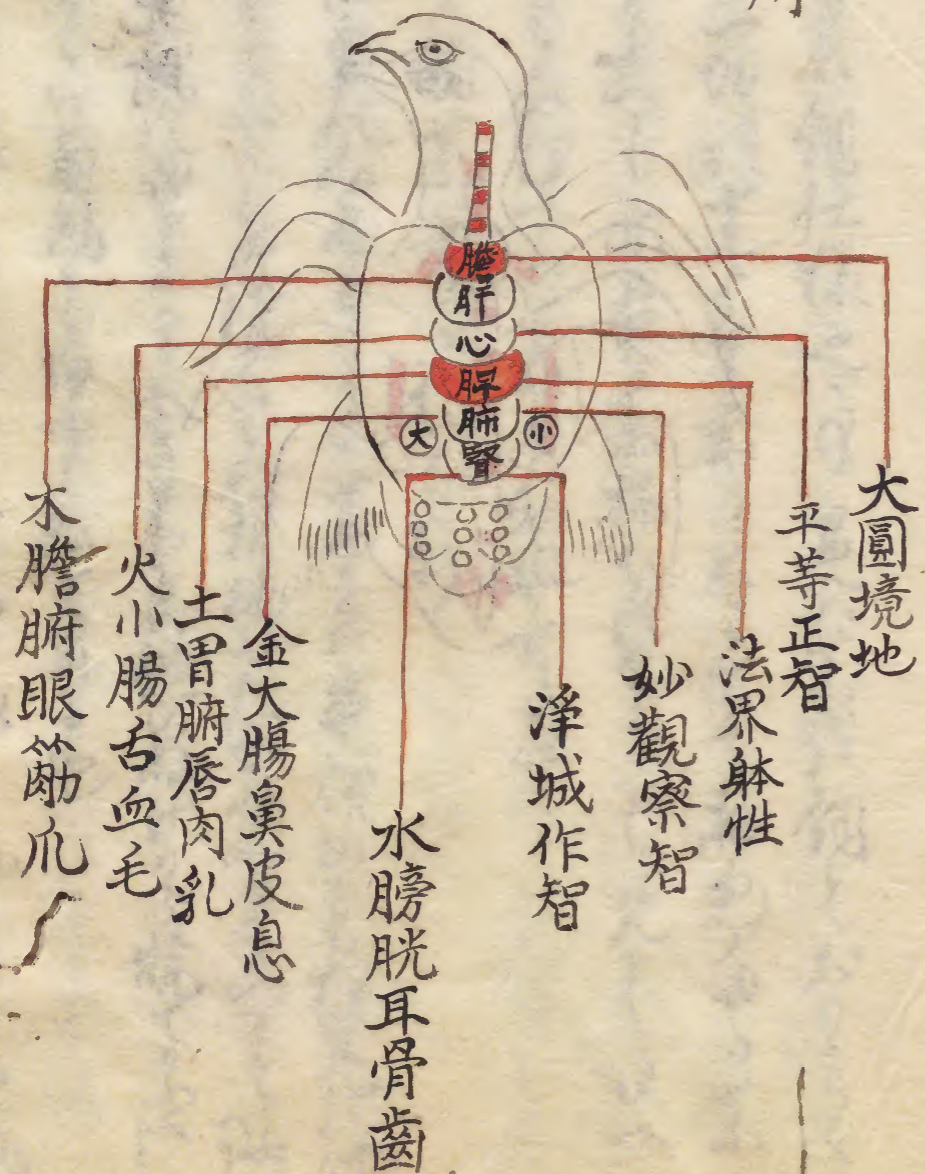 膽
肝
心
脾
肺
腎
大
小
大圓境地
平等正智
法界躰性
妙觀察智
淨城作智
水膀胱耳骨齒
金大腸鼻皮息
土胃腑唇肉乳
火小腸舌血毛
木膽腑眼筋爪